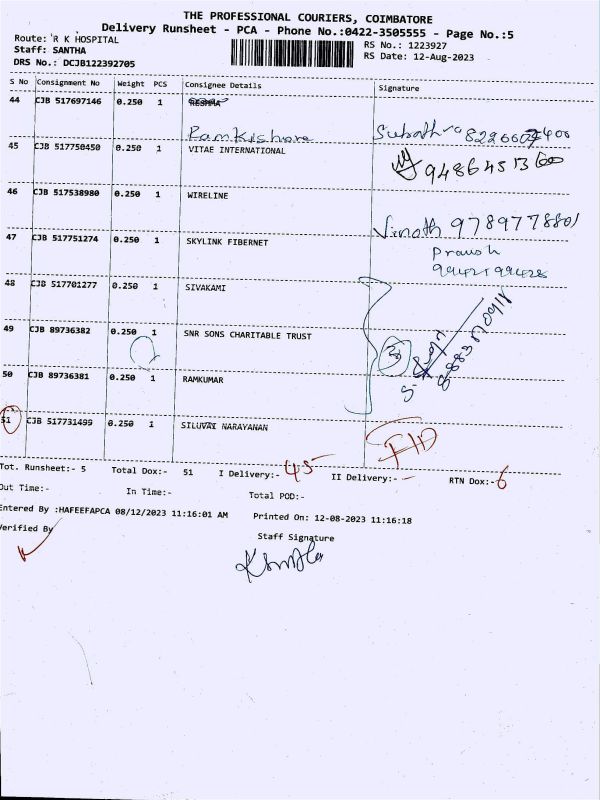 THE PROFESSIONAL COURIERS, COIMBATORE
Delivery Runsheet - PCA - Phone No.:0422-3505555 - Page No.:5
Route: R K HOSPITAL
RS No.: 1223927
Staff: SANTHA
RS Date: 12-Aug-2023
DRS No.: DCJB122392705
S No Consignment No Weight PCS Consignee Details Signature
44 CJB 517697146 0.250 1
Ramkishore
45 CJB 517750450 0.250 1 VITAE INTERNATIONAL
46 CJB 517538980 0.250 1 WIRELINE
Vinoth 9789778801
47 CJB 517751274 0.250 1 SKYLINK FIBERNET
48 CJB 517701277 0.250 1 SIVAKAMI
49 CJB 89736382 0.250 1 SNR SONS CHARITABLE TRUST
50 CJB 89736381 0.250 1 RAMKUMAR
51 CJB 517731499 0.250 1 SILUVAI NARAYANAN
Tot. Runsheet:- 5 Total Dox:- 51 I Delivery:- 45 II Delivery:- - RTN Dox:- 6
Out Time:- In Time:- Total POD:-
Entered By :HAFEEFAPCA 08/12/2023 11:16:01 AM Printed On: 12-08-2023 11:16:18
Verified By
Staff Signature